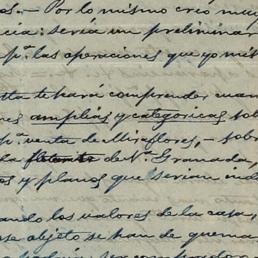 os. – Por lo mismo creo muy
cia: seria un preliminar
pª. las operaciones que yo
tta te hará comprender cuan
nes amplias y categoricas sob
pª. venta de Miraflores, – sobr
la de Nª. Granada,
os y planos que serian ind
ando los valores de la casa,
se objeto se han de quemar